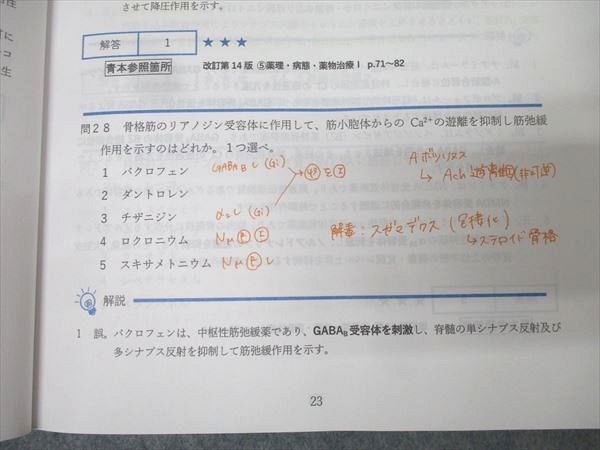 させて降圧作用を示す。
解答 1 ★★★
青本参照箇所 改訂第14版 ⑤薬理・病態・薬物治療Ⅰ p.71~82
問28 骨格筋のリアノジン受容体に作用して、筋小胞体からの Ca²⁺の遊離を抑制し筋弛緩
作用を示すのはどれか。1つ選べ。
1 バクロフェン GABA_B し (Gi)
2 ダントロレン
3 チザニジン α₂し (Gi)
4 ロクロニウム N_M
5 スキサメトニウム N_M し
Aボツリヌス
↳ Ach 遊離
解毒:スガマデクス(包接化)
↳ステロイド骨格
解説
1 誤。バクロフェンは、中枢性筋弛緩薬であり、GABA_B受容体を刺激し、脊髄の単シナプス反射及び
多シナプス反射を抑制して筋弛緩作用を示す。
23